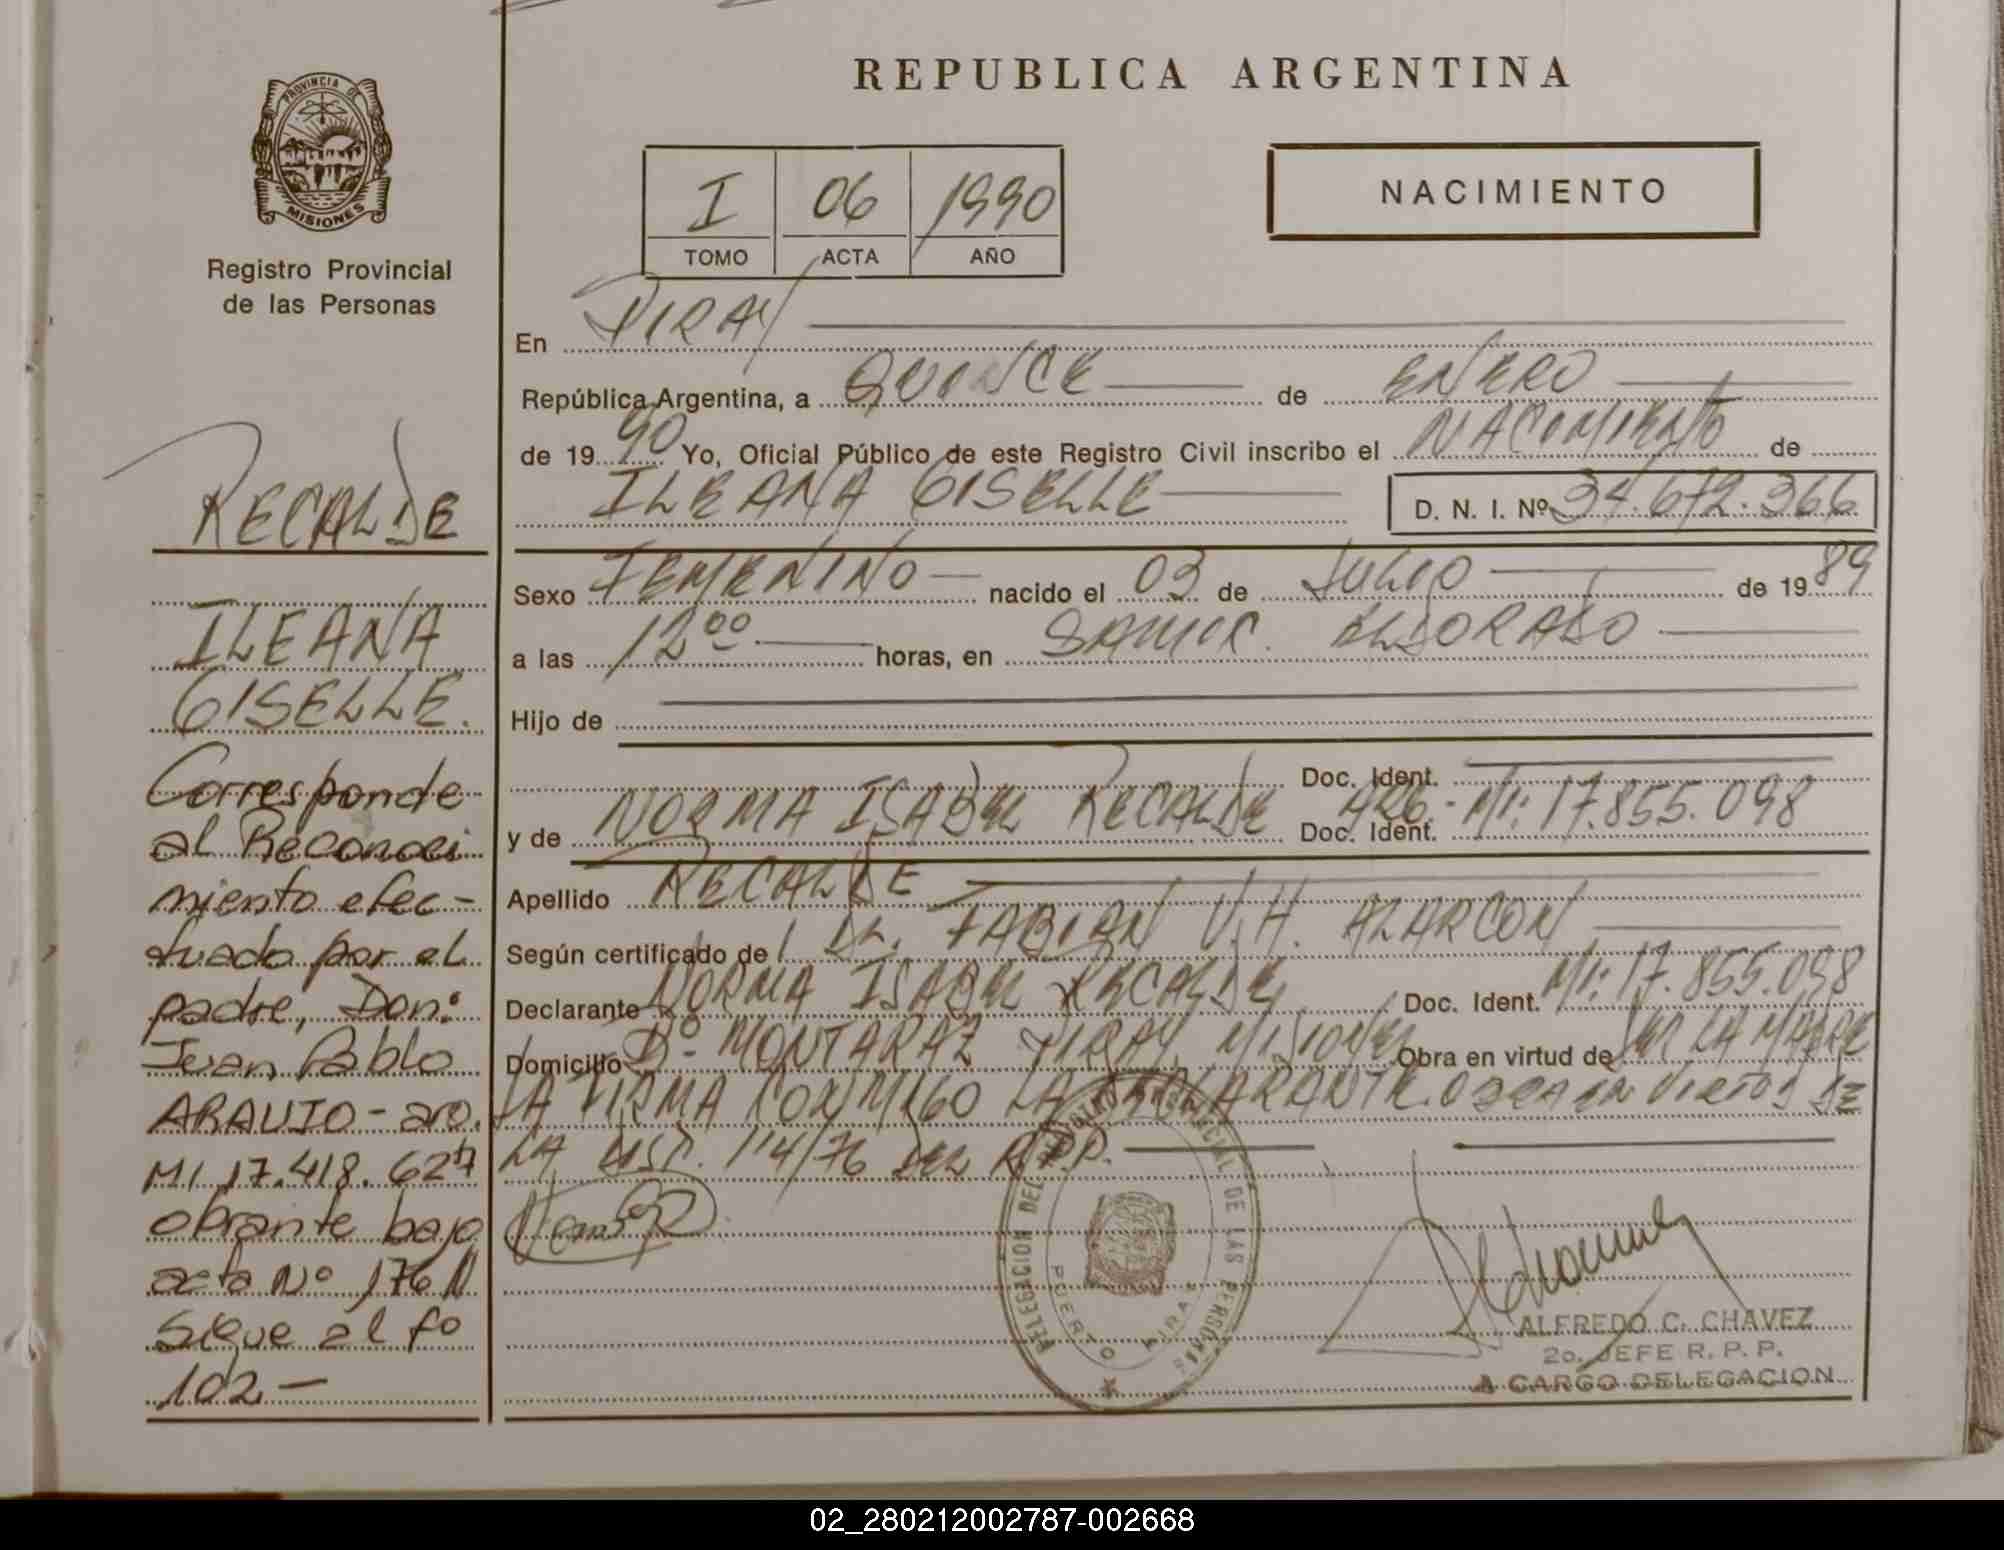 REPUBLICA ARGENTINA
PROVINCIA DE
MISIONES
Registro Provincial
de las Personas
I 06 1990
TOMO ACTA AÑO
NACIMIENTO
En PIRAY
República Argentina, a QUINCE de ENERO
de 1990 Yo, Oficial Público de este Registro Civil inscribo el NACIMIENTO de
ILEANA GISELLE D. N. I. Nº 34.672.366
Sexo FEMENINO nacido el 03 de JULIO de 1989
a las 12⁰⁰ horas, en SANIC. ELDORADO
Hijo de
Doc. Ident.
y de NORMA ISABEL RECALDE Doc. Ident. ARG.- MI: 17.855.098
Apellido RECALDE
Según certificado de DR. FABIAN V.H. ALARCON
Declarante NORMA ISABEL RECALDE Doc. Ident. MI: 17.855.098
Domicilio Bº. MONTARAZ PIRAY MISIONES Obra en virtud de SER LA MADRE
LA FIRMA CONMIGO LA DECLARANTE. OBRA EN VIRTUD DE
LA DISP. 114/76 DEL R.P.P.
DELEGACION DEL REGISTRO PROVINCIAL DE LAS PERSONAS
PUERTO PIRAY
ALFREDO C. CHAVEZ
2o. JEFE R. P. P.
A CARGO DELEGACION
RECALDE
ILEANA
GISELLE.
Corresponde
al Reconoci
miento efec-
tuado por el
padre, Don:
Juan Pablo
ARAUJO - arg.
MI 17.418.627
obrante bajo
acta Nº 176 N
Sigue al fo
102 -
02_280212002787-002668